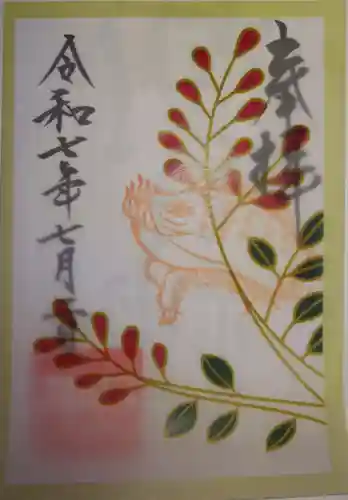 奉拝
令和七年七月